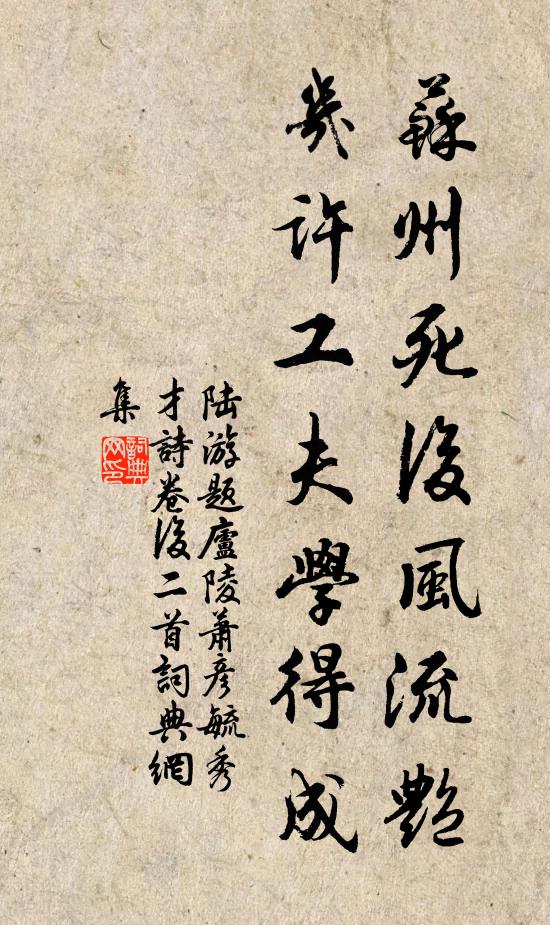 蘇州死後風流艷
幾許工夫學得成
陆游題廬陵蕭彥毓秀
才詩卷後二首詞典網
集
詞典
网印